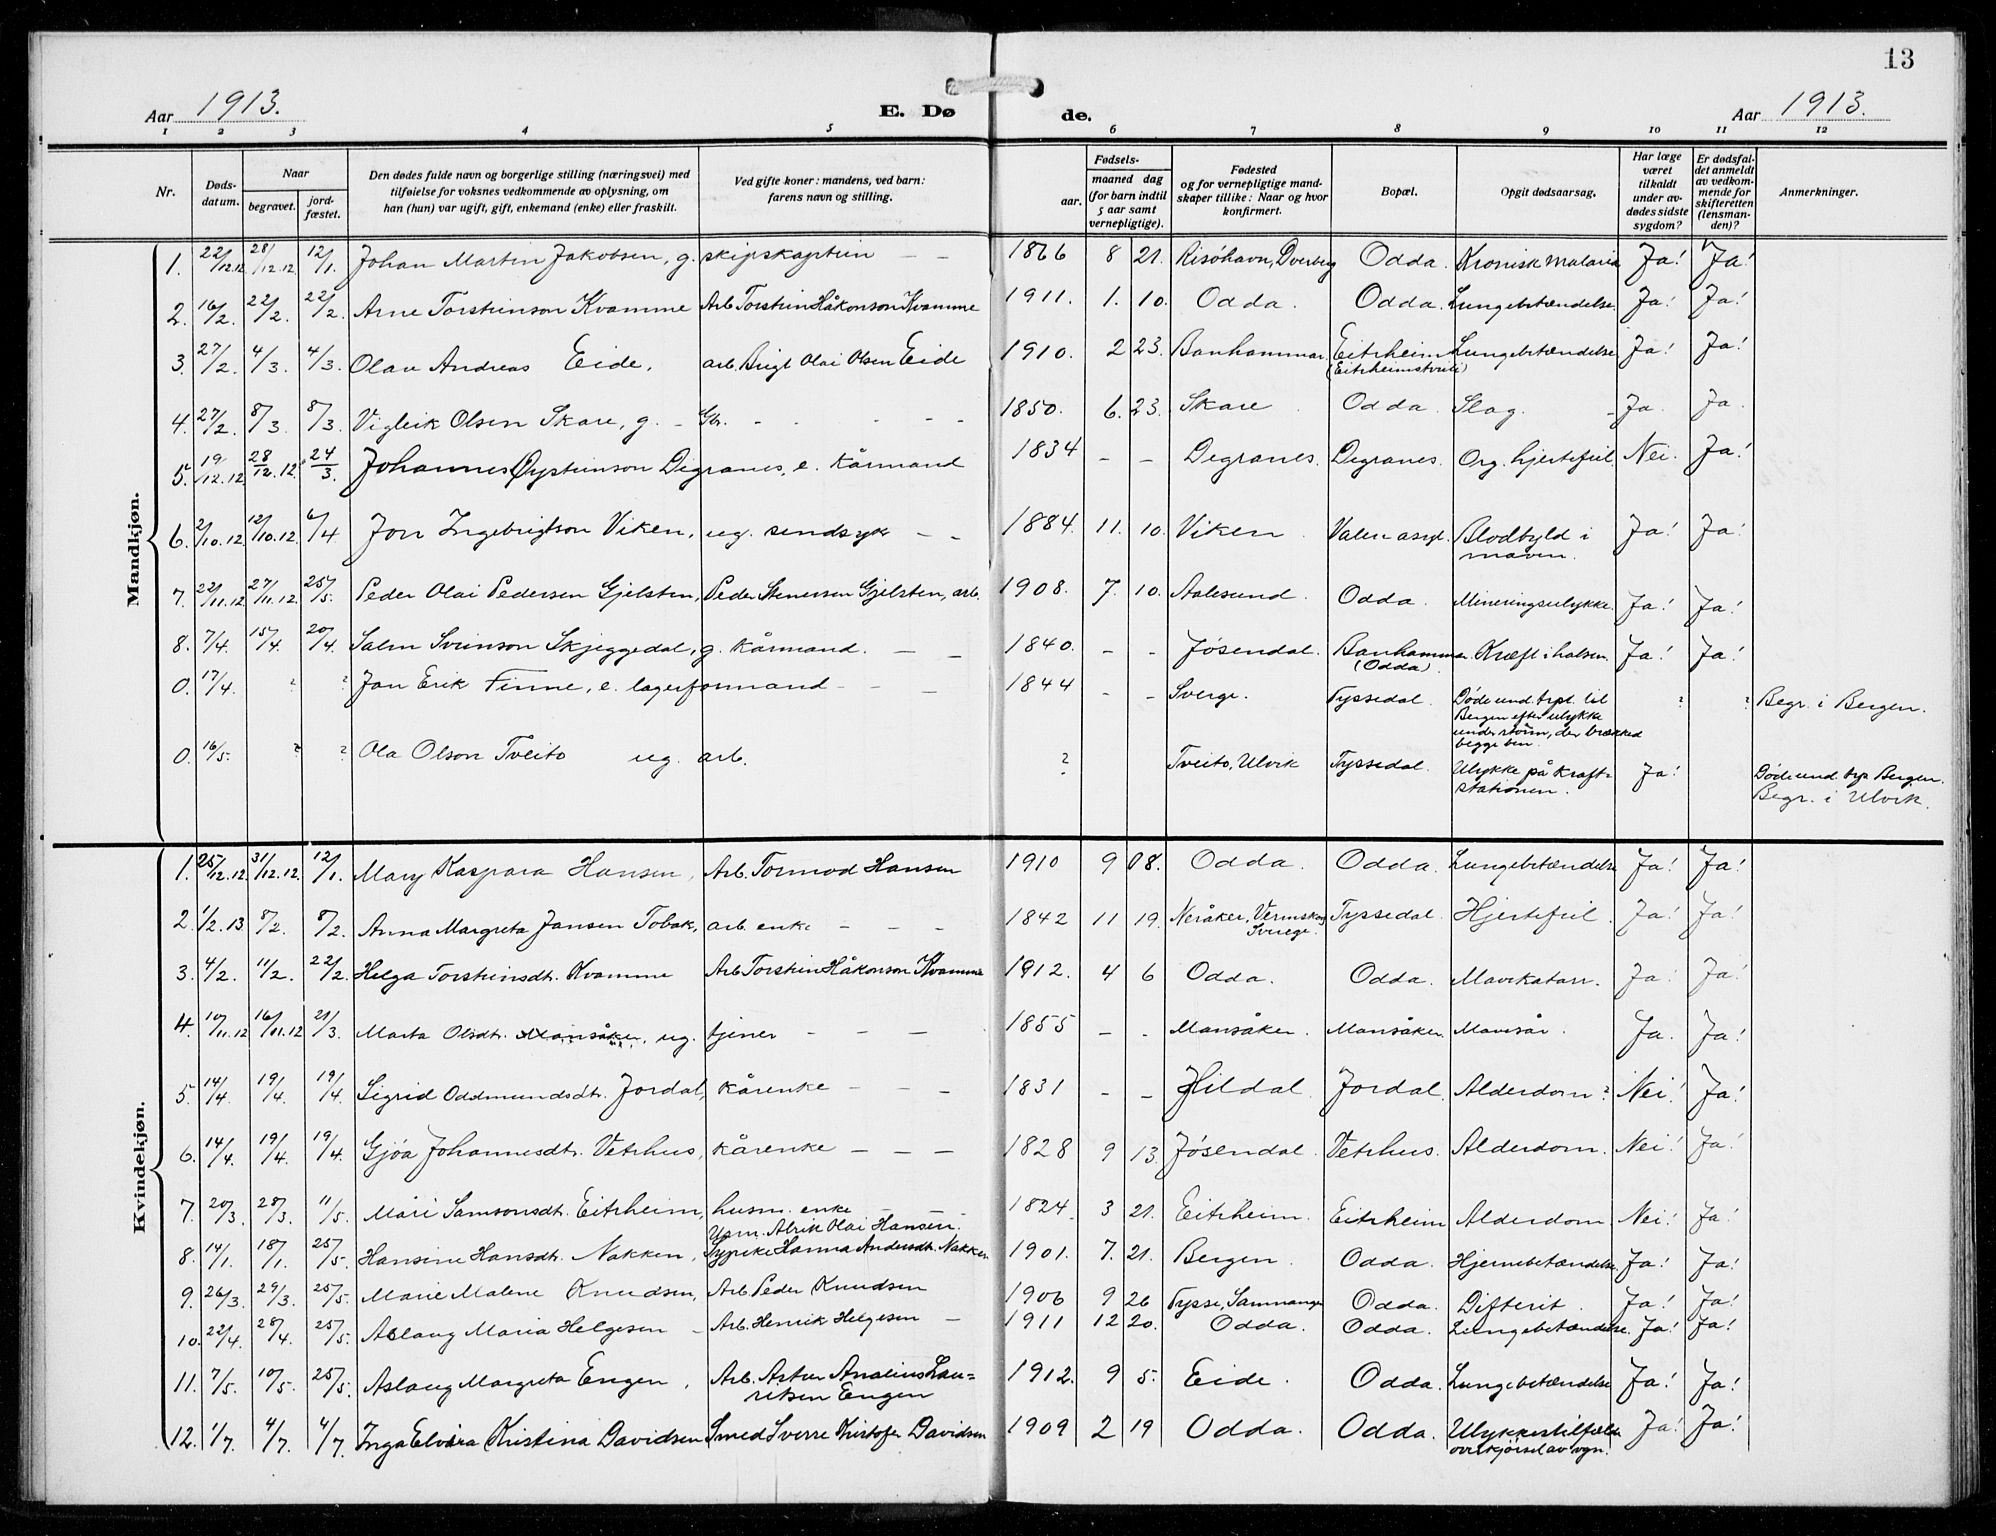 13
Aar 1913.
E. Dø de.
Aar 1913.
1 2 3 4 5 6 7 8 9 10 11 12
Nr.
Døds-
datum.
Naar
begravet.
jord-
fæstet.
Den dødes fulde navn og borgerlige stilling (næringsvei) med
tilføielse for voksnes vedkommende av oplysning, om
han (hun) var ugift, gift, enkemand (enke) eller fraskilt.
Ved gifte koner: mandens, ved barn:
farens navn og stilling.
Fødsels-
aar.
maaned dag
(for barn indtil
5 aar samt
vernepligtige).
Fødested
og for vernepligtige mand-
skaper tillike: Naar og hvor
konfirmert.
Bopæl.
Opgit dødsaarsag.
Har læge
været
tilkaldt
under av-
dødes sidste
sygdom?
Er dødsfal-
det anmeldt
av vedkom-
mende for
skifteretten
(lensman-
den)?
Anmerkninger.
Mandkjøn.
1. 22/12.12 28/12.12 12/1. Johan Martin Jakobsen, g. skipskaptein – – 1866 8 21. Risøhavn, Dverberg Odda. Kronisk malaria Ja! Ja!
2. 16/2. 22/2. 22/2. Arne Torsteinson Kvamme Arb. Torstein Håkonson Kvamme 1911. 1. 10. Odda. Odda. Lungebetændelse. Ja! Ja!
3. 27/2. 4/3. 4/3. Olav Andreas Eide, arb. Brigt Olai Olsen Eide 1910. 2 23. Banhammar. Eitrheim Lungebetændelse Ja! Ja!
(Eitrheimstveit)
4. 27/2. 8/3. 8/3. Vigleik Olsen Skare, g. – Gbr. - - - - 1850. 6. 23. Skare. Odda. Slag. - Ja. Ja.
5. 19/12.12. 28/12.12. 24/3. Johannes Øysteinson Digranes, e. Kårmand 1834 – – Digranes. Digranes. Org. hjertefeil. Nei. Ja!
6. 2/10.12. 12/10.12. 6/4 Jon Ingebrigtson Viken, ug. sendsyk – – 1884. 11. 10. Viken. Valen asyl. Blodbyld i Ja! Ja!
maven.
7. 22/11.12 27/11.12. 25/5. Peder Olai Pedersen Gjelsten, Peder Stenersen Gjelsten, arb. 1908. 7. 10. Aalesund. Odda. Mineringsulykke. Ja! Ja!
8. 7/4. 15/4. 20/4. Salm Sveinson Skjeggedal, g. Kårmand. – – 1840. - - Jøsendal. Banhammar. Kræft i halsen. Ja! Ja!
(Odda)
0. 17/4. ? ? Jan Erik Finne, e. lagerformand – – – 1844 - - Sverge. Tyssedal. Døde und. trpt. til ? ? Begr. i Bergen.
Bergen efter ulykke
under storm, der brækked
begge ben.
0. 16/5. ? ? Ola Olson Tveito ug. arb. ? Tveito, Ulvik Tyssedal. Ulykke på Kraft- Ja! Døde und. trp Bergen.
stationen. Begr. i Ulvik.
Kvindekjøn.
1. 25/12.12 31/12.12. 12/1. Mary Kaspara Hansen, Arb. Tormod Hansen 1910 9 08. Odda. Odda. Lungebetændelse Ja! Ja!
2. 1/2.13 8/2. 8/2. Anna Margreta Jansen Tobak, arb. enke – – – 1842 11 19. Neråker, Vermskog Tyssedal. Hjertefeil. Ja! Ja!
Sverge.
3. 4/2. 11/2. 22/2. Helga Torsteinsdt. Kvamme Arb. Torstein Håkonson Kvamme 1912. 4 6 Odda. Odda. Mavekatarr. Ja! Ja!
4. 10/11.12 16/11.12 21/3. Marta Olsdt. Mansåker, ug. tjener – – – 1855 - - Mansåker. Mansåker. Mavesår. Ja. Ja!
5. 14/4. 19/4. 19/4. Sigrid Oddmundsdt. Jordal, Kårenke – – – 1831 - – Hildal. Jordal. Alderdom? Nei! Ja!
6. 14/4. 19/4. 19/4. Gjøa Johannesdt. Vetrhus, Kårenke – – – 1828 9 13. Jøsendal. Vetrhus. Alderdom. Nei! Ja!
7. 20/3. 28/3. 11/5. Mari Samsonsdt. Eitrheim, husm. enke – – 1824. 3 21. Eitrheim. Eitrheim Alderdom Nei! Ja!
Usm. Alrik Olai Hansen.
8. 14/1. 18/1. 25/5. Hansine Hansdt. Nakken, Sypike Hanna Andersdt. Nakken 1901. 7. 21. Bergen. Odda. Hjernebetændelse Ja! Ja!
9. 26/3. 29/3. 25/5. Marie Malene Knudsen, Arb. Peder Knudsen 1906 9 26 Tysse, Samnanger Odda. Difterit. Ja! Ja!
10. 22/4. 28/4. 25/5. Aslaug Maria Helgesen – Arb. Henrik Helgesen – 1911 12 20. Odda. Odda. Lungebetændelse. Ja! Ja!
11. 7/5. 10/5. 25/5. Aslaug Margreta Engen, Arb. Artur Analius Lau- 1912. 9 5. Eide. Odda. Lungebetændelse Ja! Ja!
ritsen Engen
12. 1/7. 4/7. 4/7. Inga Elvira Kristina Davidsen Smed Sverre Kristofer Davidsen 1909 2 19 Odda. Odda. Ulykkestilfælde Ja! Ja!
overkjørsel av vgn.